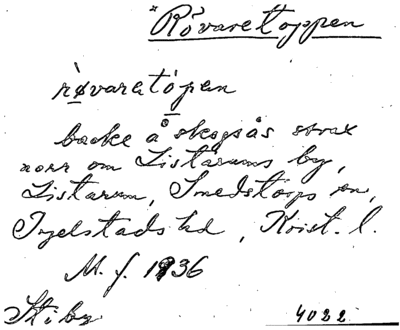 *Rövaretoppen
rövaretåpen
backe å skogsås strax
norr om Listarums by,
Listarum, Smedstorps sn,
Ingelstads hd, Krist. l.
M. f. 1936
Stiby
4022